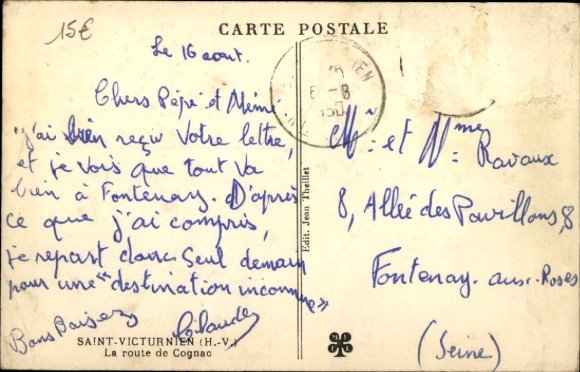 15€
CARTE POSTALE
Le 16 aout.
Chers Pépé et Mémé
J'ai bien reçu votre lettre,
et je vois que tout va
bien à Fontenay. D'après
ce que j'ai compris,
je repart donc seul demain
pour une "destination inconnue"
Bons Baisers
Claude
SAINT-VICTURNIEN (H.-V.)
La route de Cognac
Edit. Jean Theillet
Mr et Mme
Ravaux
8, Allée des Pavillons, 8
Fontenay-aux-Roses
(Seine)